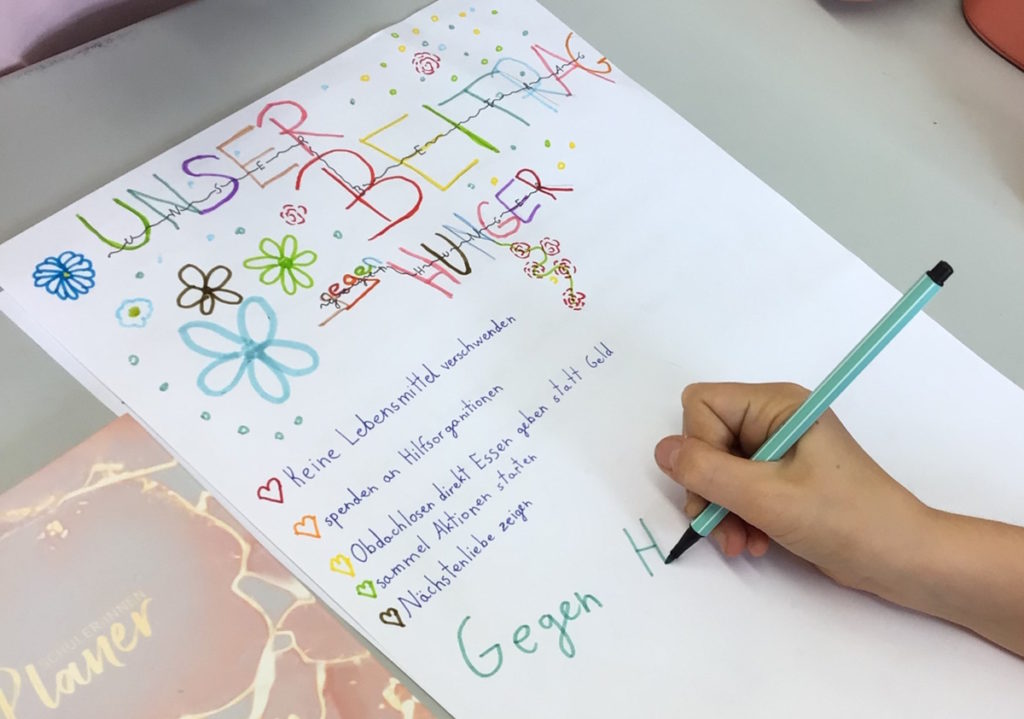 UNSER BEITRAG
gegen HUNGER
Keine Lebensmittel verschwenden
spenden an Hilfsorganitionen
Obdachlosen direkt Essen geben statt Geld
sammel Aktionen starten
Nächstenliebe zeigen
Gegen H
SCHÜLER:INNEN
Planer